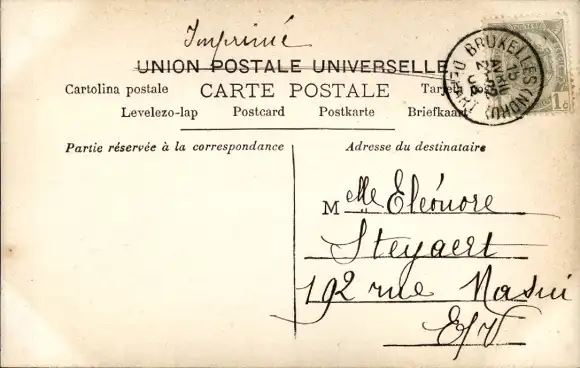 Imprimé
UNION POSTALE UNIVERSELLE
Cartolina postale CARTE POSTALE Tarjeta
Levelezo-lap Postcard Postkarte Briefkaart
Partie réservée à la correspondance
Adresse du destinataire
BRUXELLES (NORD)
DÉPART
15
AVRIL
1c
Melle Eléonore
Steyaert
192 rue Masui
E/V